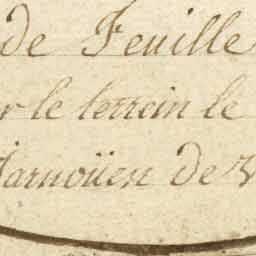 de Feuille
r le terrein le
Jarnoüen de V